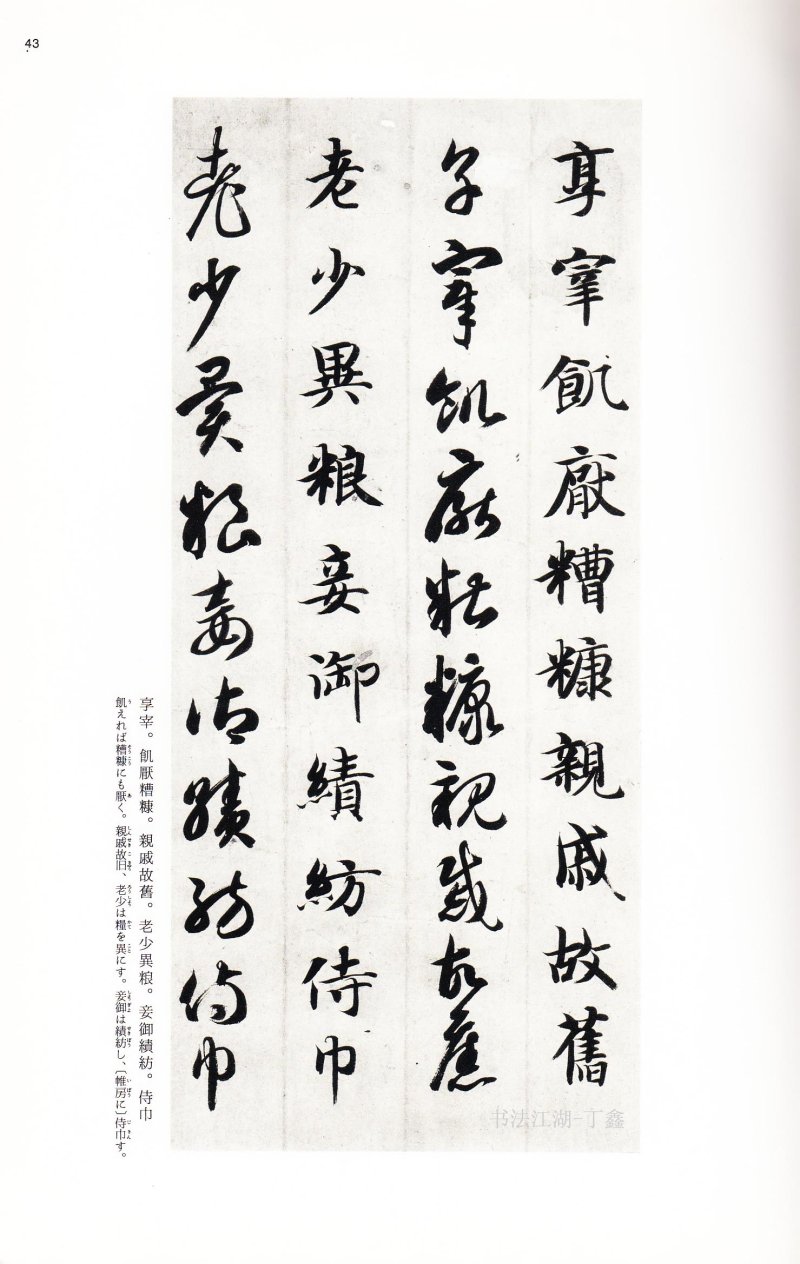 43
享宰飢厭糟糠親戚故舊
享宰飢厭糟糠親戚故舊
老少異粮妾御績紡侍巾
老少異粮妾御績紡侍巾
书法江湖-丁鑫
享宰。飢厭糟糠。親戚故舊。老少異粮。妾御績紡。侍巾
飢えれば糟糠にも厭く。親戚故旧、老少は糧を異にす。妾御は績紡し、〔帷房に〕侍巾す。